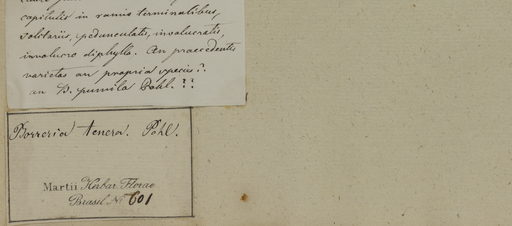 capitulis in ramis terminalibus,
solitariis, pedunculatis, involucratis,
involucro diphyllo. An praecedentis
varietas an propria species?
an B. pumila Pohl.??
Borreria tenera. Pohl.
Martii Herbar. Florae
Brasil. No 601